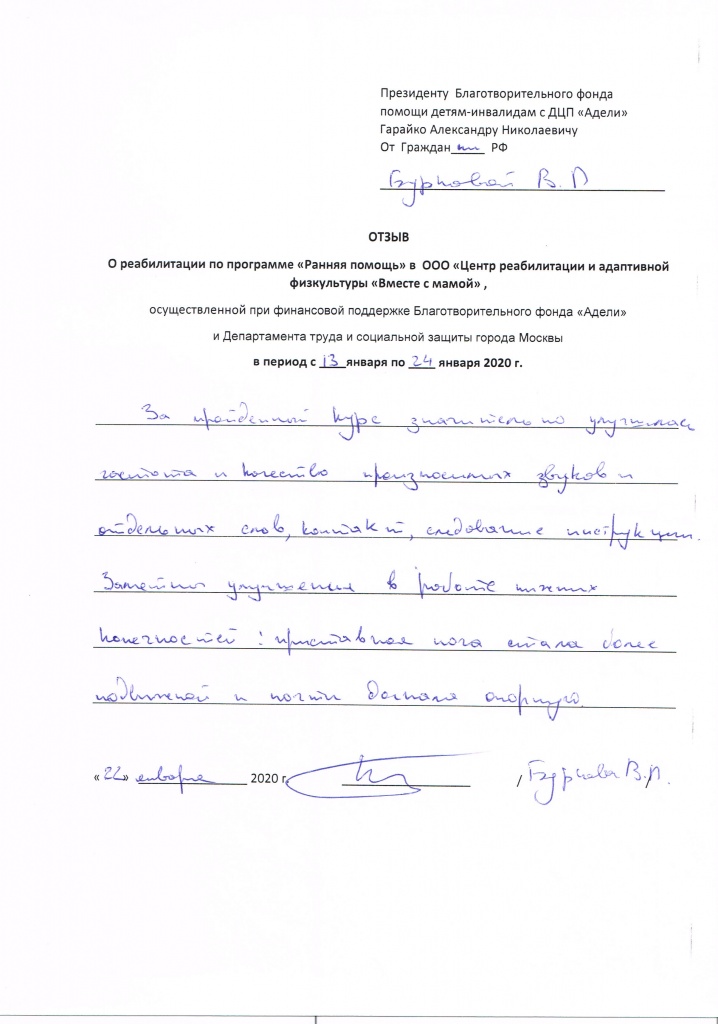 Президенту Благотворительного фонда
помощи детям-инвалидам с ДЦП «Адели»
Гарайко Александру Николаевичу
От Граждан ки РФ
Бурковой В. П
ОТЗЫВ
О реабилитации по программе «Ранняя помощь» в ООО «Центр реабилитации и адаптивной
физкультуры «Вместе с мамой» ,
осуществленной при финансовой поддержке Благотворительного фонда «Адели»
и Департамента труда и социальной защиты города Москвы
в период с 13 января по 24 января 2020 г.
За пройденный курс значительно улучшилась
частота и качество произносимых звуков и
отдельных слов, контакт, следование инструкции.
Заметны улучшения в работе нижних
конечностей : приставная нога стала более
подвижной и почти догнала опорную.
«22» января 2020 г. / Буркова В.П. /